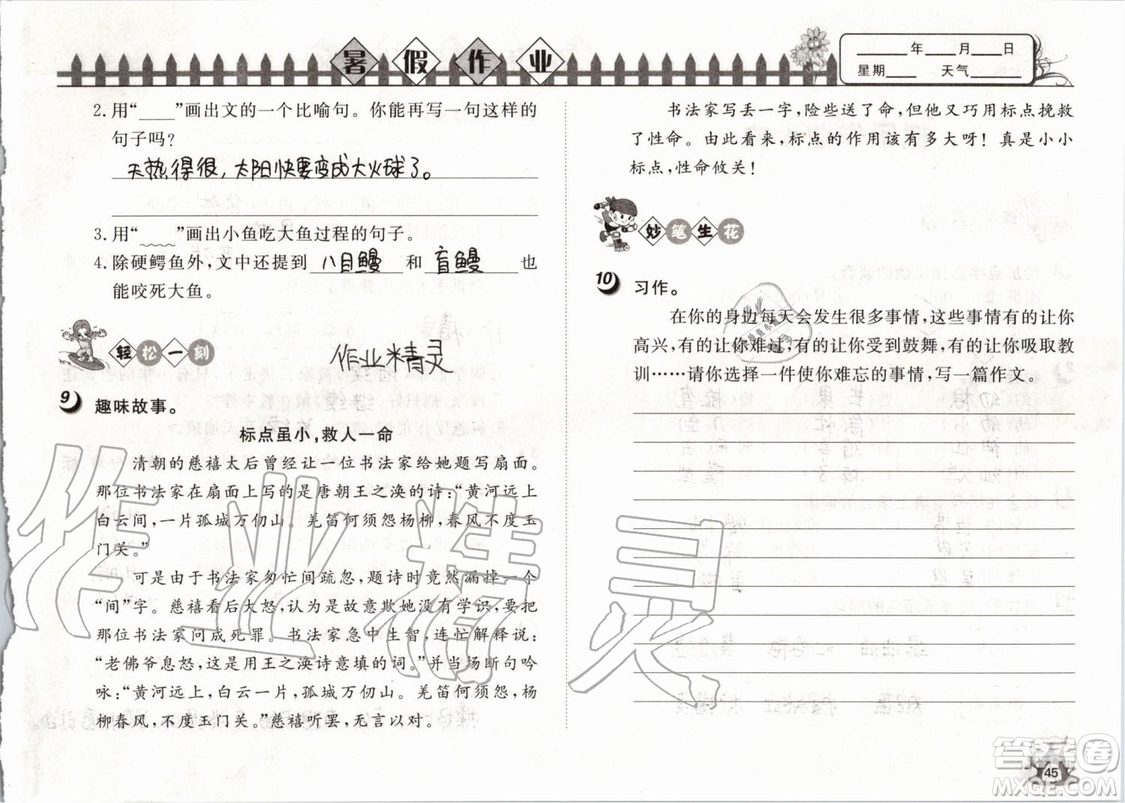 暑假作业
____年____月____日
星期____ 天气____
2.用“____”画出文的一个比喻句。你能再写一句这样的
句子吗？
天热得很，太阳快要变成大火球了。
3.用“____”画出小鱼吃大鱼过程的句子。
4.除硬鳄鱼外，文中还提到 八目鳗 和 盲鳗 也
能咬死大鱼。
轻松一刻
作业精灵
9 趣味故事。
标点虽小，救人一命
清朝的慈禧太后曾经让一位书法家给她题写扇面。
那位书法家在扇面上写的是唐朝王之涣的诗：“黄河远上
白云间，一片孤城万仞山。羌笛何须怨杨柳，春风不度玉
门关。”
可是由于书法家匆忙间疏忽，题诗时竟然漏掉一个
“间”字。慈禧看后大怒，以为是故意欺她没有学识，要把
那位书法家问成死罪。书法家急中生智，连忙解释说：
“老佛爷息怒，这是用王之涣诗意填的词。”并当面断句吟
咏：“黄河远上，白云一片，孤城万仞山。羌笛何须怨，杨
柳春风，不度玉门关。”慈禧听罢，无言以对。
书法家写丢一字，险些送了命，但他又巧用标点挽救
了性命。由此看来，标点的作用该有多大呀！真是小小
标点，性命攸关！
妙笔生花
10 习作。
在你的身边每天会发生很多事情，这些事情有的让你
高兴，有的让你难过，有的让你受到鼓舞，有的让你吸取教
训……请你选择一件使你难忘的事情，写一篇作文。
作业精灵
答案圈
MXQE.COM
45